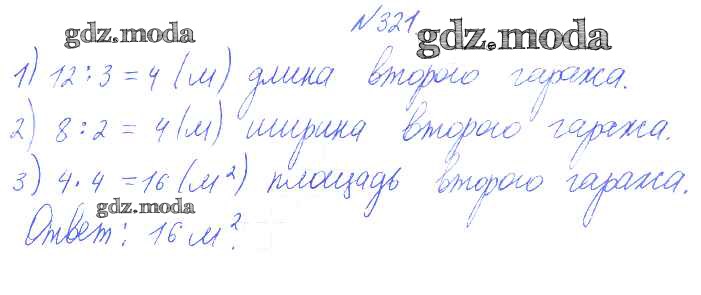 №321
gdz.moda gdz.moda
1) 12:3=4 (м) длина второго гаража.
2) 8:2=4(м) ширина второго гаража.
3) 4·4=16(м²) площадь второго гаража.
gdz.moda
Ответ: 16м².